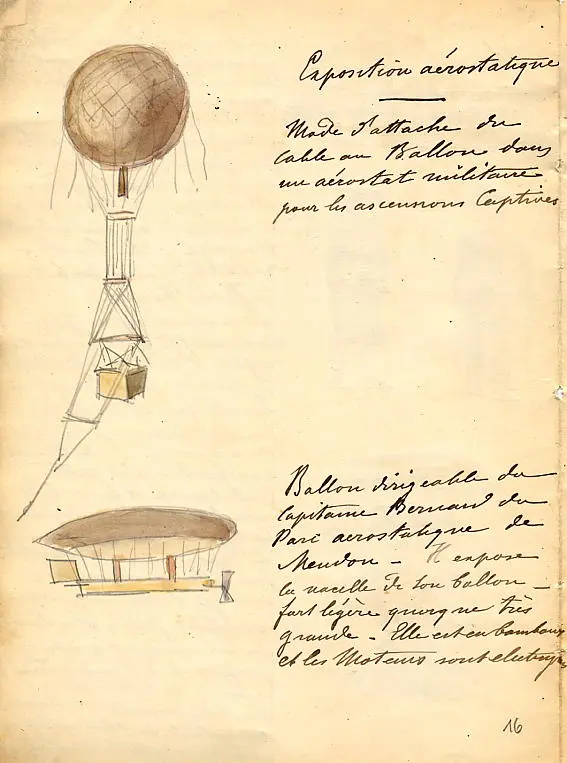 Exposition aérostatique
Mode d'attache du
cable au Ballon dans
un aérostat militaire
pour les ascensions Captives
Ballon dirigeable du
Capitaine Bernard du
Parc aerostatique de
Meudon - Il expose
la nacelle de son ballon -
fort légère quoique très
grande - Elle est en bambous
et les Moteurs sont electriq
16